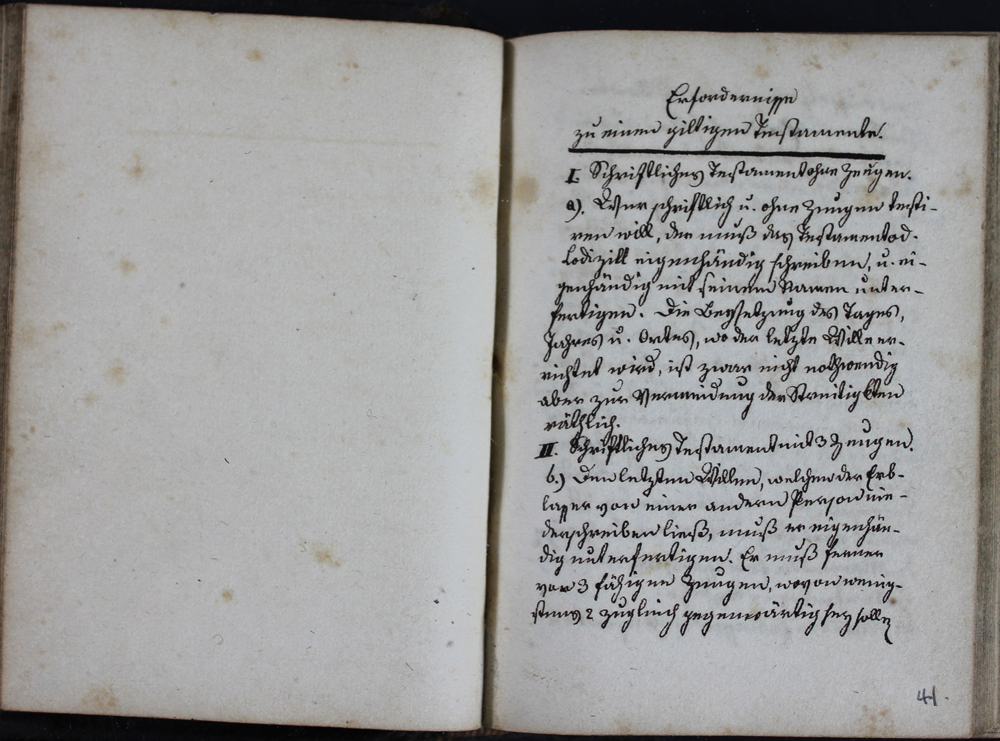 Erfordernisse
zu einem giltigen Testamente.
I. Schriftliches Testament ohne Zeugen.
a). Wer schriftlich u. ohne Zeugen testi-
ren will, der muß das Testament od.
Kodizill eigenhändig schreiben, u. ei-
genhändig mit seinem Namen unter-
fertigen. Die Beysetzung des Tages,
Jahres u. Ortes, wo der letzte Wille er-
richtet wird, ist zwar nicht nothwendig
aber zur Vermeidung der Streitigkten
räthlich.
II. Schriftliches Testament mit 3 Zeugen.
b.) Den letzten Willen, welchen der Erb-
lasser von einer andern Person nie-
derschreiben ließ, muß er eigenhän-
dig unterfertigen. Er muß ferner
vor 3 fähigen Zeugen, wovon wenig-
stens 2 zugleich gegenwärtig sey sollen
41.